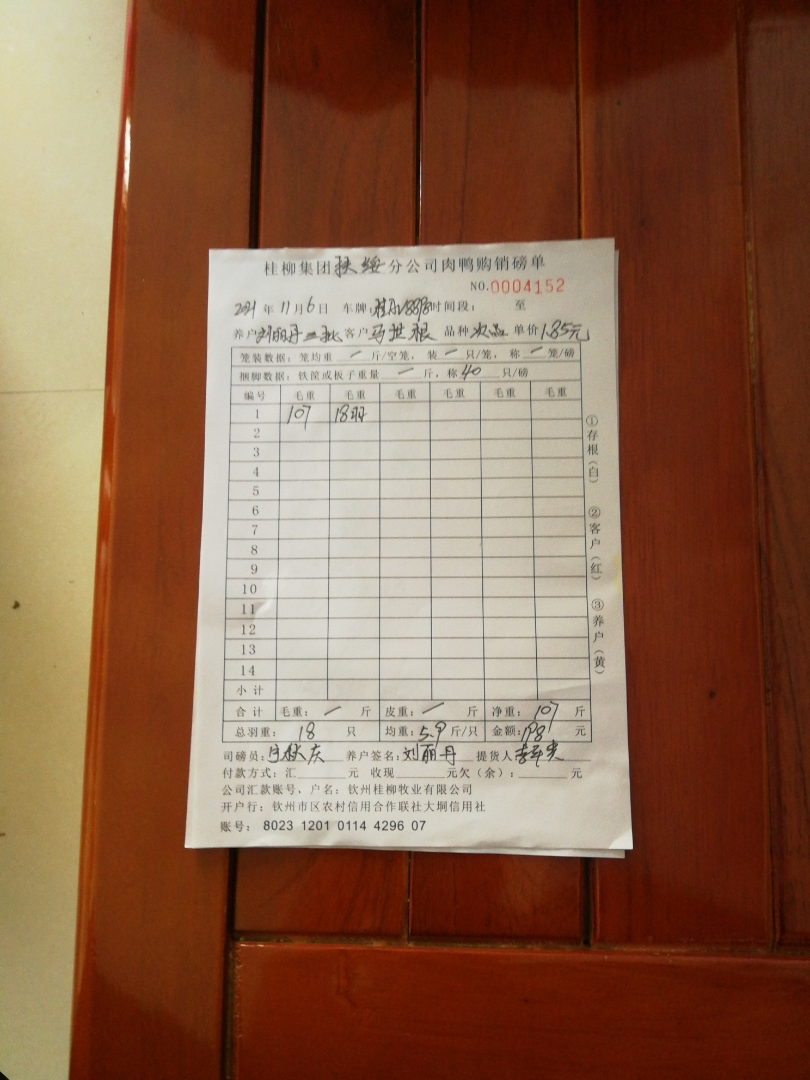 桂柳集团扶绥分公司肉鸭购销磅单
NO.0004152
2021年11月6日 车牌: 时间段: 至
养户刘丽丹二批 客户马世根 品种次品 单价1.85元
笼装数据: 笼均重 一 斤/空笼, 装 一 只/笼, 称 一 笼/磅
捆脚数据: 铁筐或板子重量 一 斤, 称 40 只/磅
编号 毛重 毛重 毛重 毛重 毛重 毛重
1 107 18羽
2
3
4
5
6
7
8
9
10
11
12
13
14
小计
合计 毛重: 一 斤 皮重: 一 斤 净重: 107 斤
总羽重: 18 只 均重: 5.9 斤/只 金额: 198 元
司磅员: 养户签名: 刘丽丹 提货人
付款方式: 汇 元 收现 元欠(余): 元
公司汇款账号, 户名: 钦州桂柳牧业有限公司
开户行: 钦州市区农村信用合作联社大垌信用社
账号: 8023 1201 0114 4296 07
①存根(白) ②客户(红) ③养户(黄)